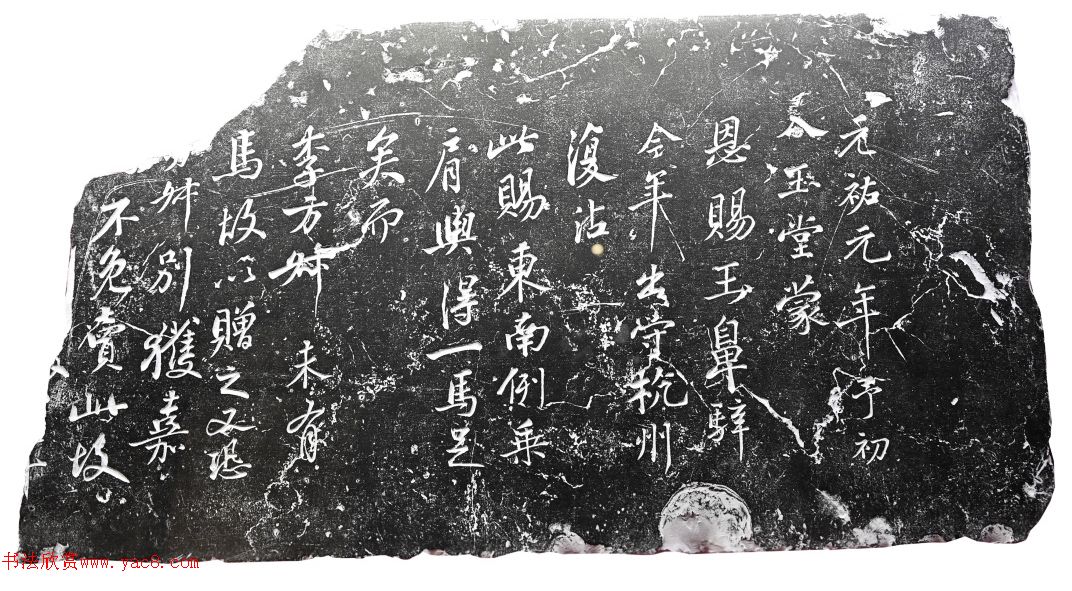 元祐元年予初
入玉堂蒙
恩賜玉鼻騂
今年出守杭州
復沾
此賜東南例乗
肩輿得一馬足
矣而
李方叔未有
馬故以贈之又恐
方叔別獲嘉
不免賣此故
书法欣赏www.yac8.com